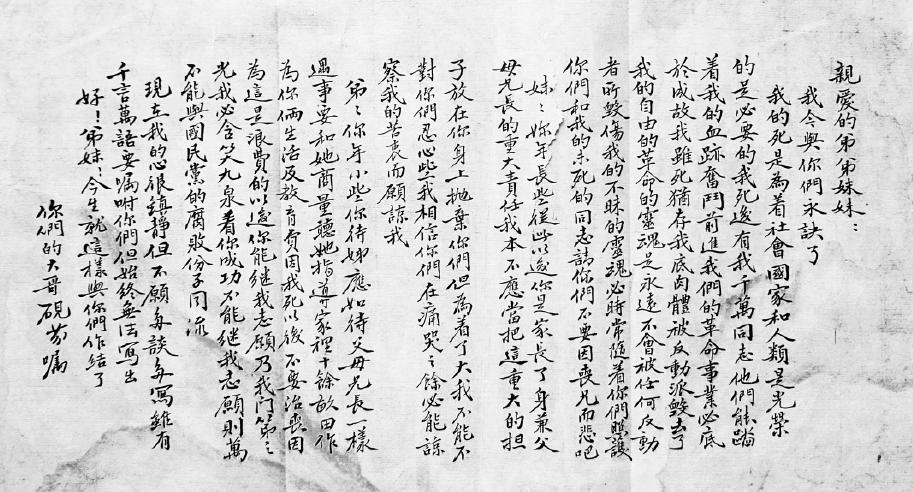 親愛的弟弟妹妹：
我今與你們永訣了
我的死是為着社會國家和人類是光榮
的是必要的我死後有我千萬同志他們能踏
着我的血跡奮鬥前進我們的革命事業必底
於成故我雖死猶存我底肉體被反動派毀去了
我的自由的革命的靈魂是永遠不會被任何反動
者所毀傷我的不昧的靈魂必時常隨着你們照護
你們和我的未死的同志請你們不要因喪兄而悲吧
妹：妳年長些從此以後你是家長了身兼父
母兄長的重大責任我本不應當把這重大的担
子放在你身上拋棄你們但為着了大我不能不
對你們忍心些我相信你們在痛哭之餘必能諒
察我的苦衷而願諒我
弟：你年小些你待姊應如待父母兄長一樣
遇事要和她商量聽她指導家裡十餘畝田作
為你倆生活及教育費因我死以後不要治喪因
為這是浪費的以後你能繼我志願乃我門第之
光我必含笑九泉看你成功不能繼我志願則萬
不能與國民黨的腐敗份子同流
現在我的心很鎮靜但不願多談多寫雖有
千言萬語要囑咐你們但始終無法寫出
好！弟妹：今生就這樣與你們作結了
你們的大哥硯芬囑